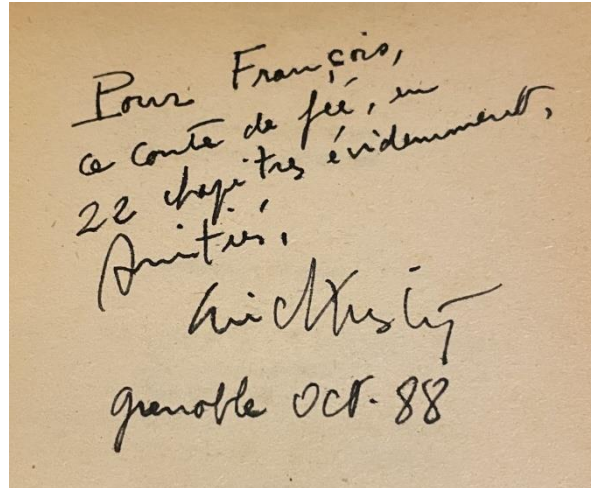 Pour François,
ce conte de fée, en
22 chapitres évidemment,
Amitiés,
grenoble oct. 88